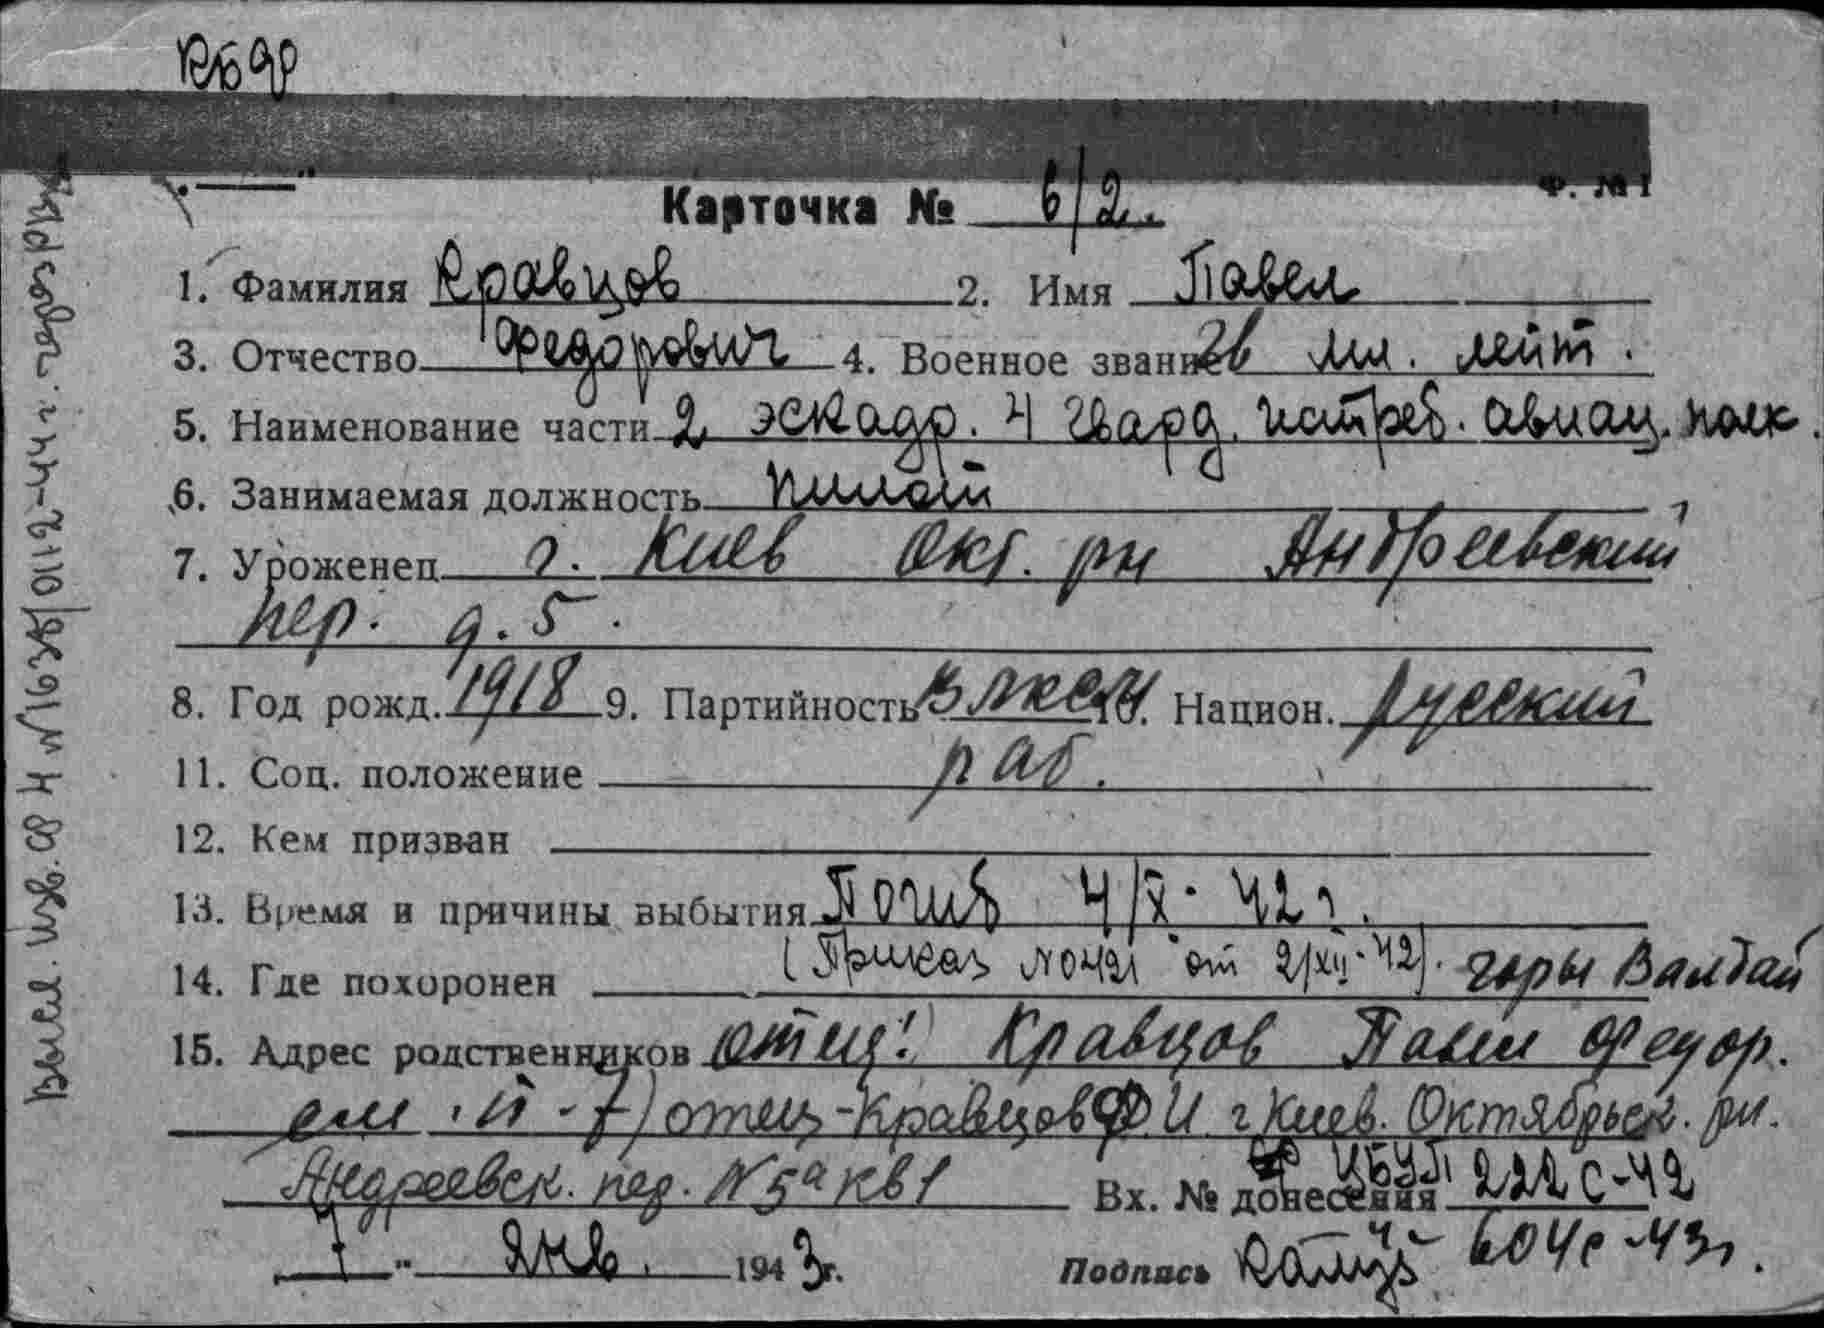 КБФ
Ф. № 1
Карточка № 6/2.
1. Фамилия Кравцов 2. Имя Павел
3. Отчество Федорович 4. Военное звание гв мл. лейт.
5. Наименование части 2 эскадр. 4 гвард. истреб. авиац. полк.
6. Занимаемая должность пилот
7. Уроженец г. Киев Окт. рн Андреевский
пер. д. 5.
8. Год рожд. 1918 9. Партийность ВЛКСМ 10. Национ. русский
11. Соц. положение раб.
12. Кем призван
13. Время и причины выбытия Погиб 4/X-42 г.
(Приказ № 0421 от 2/XII-42).
14. Где похоронен горы Валдай
15. Адрес родственников отец! Кравцов Павел Федор.
отец - Кравцов Ф И г Киев. Октябрьск. рн.
Андреевск. пер. № 5а кв 1 Вх. № донесения ЦБУП 222 с-42
604с-43г.
7 " янв. 1943г. Подпись